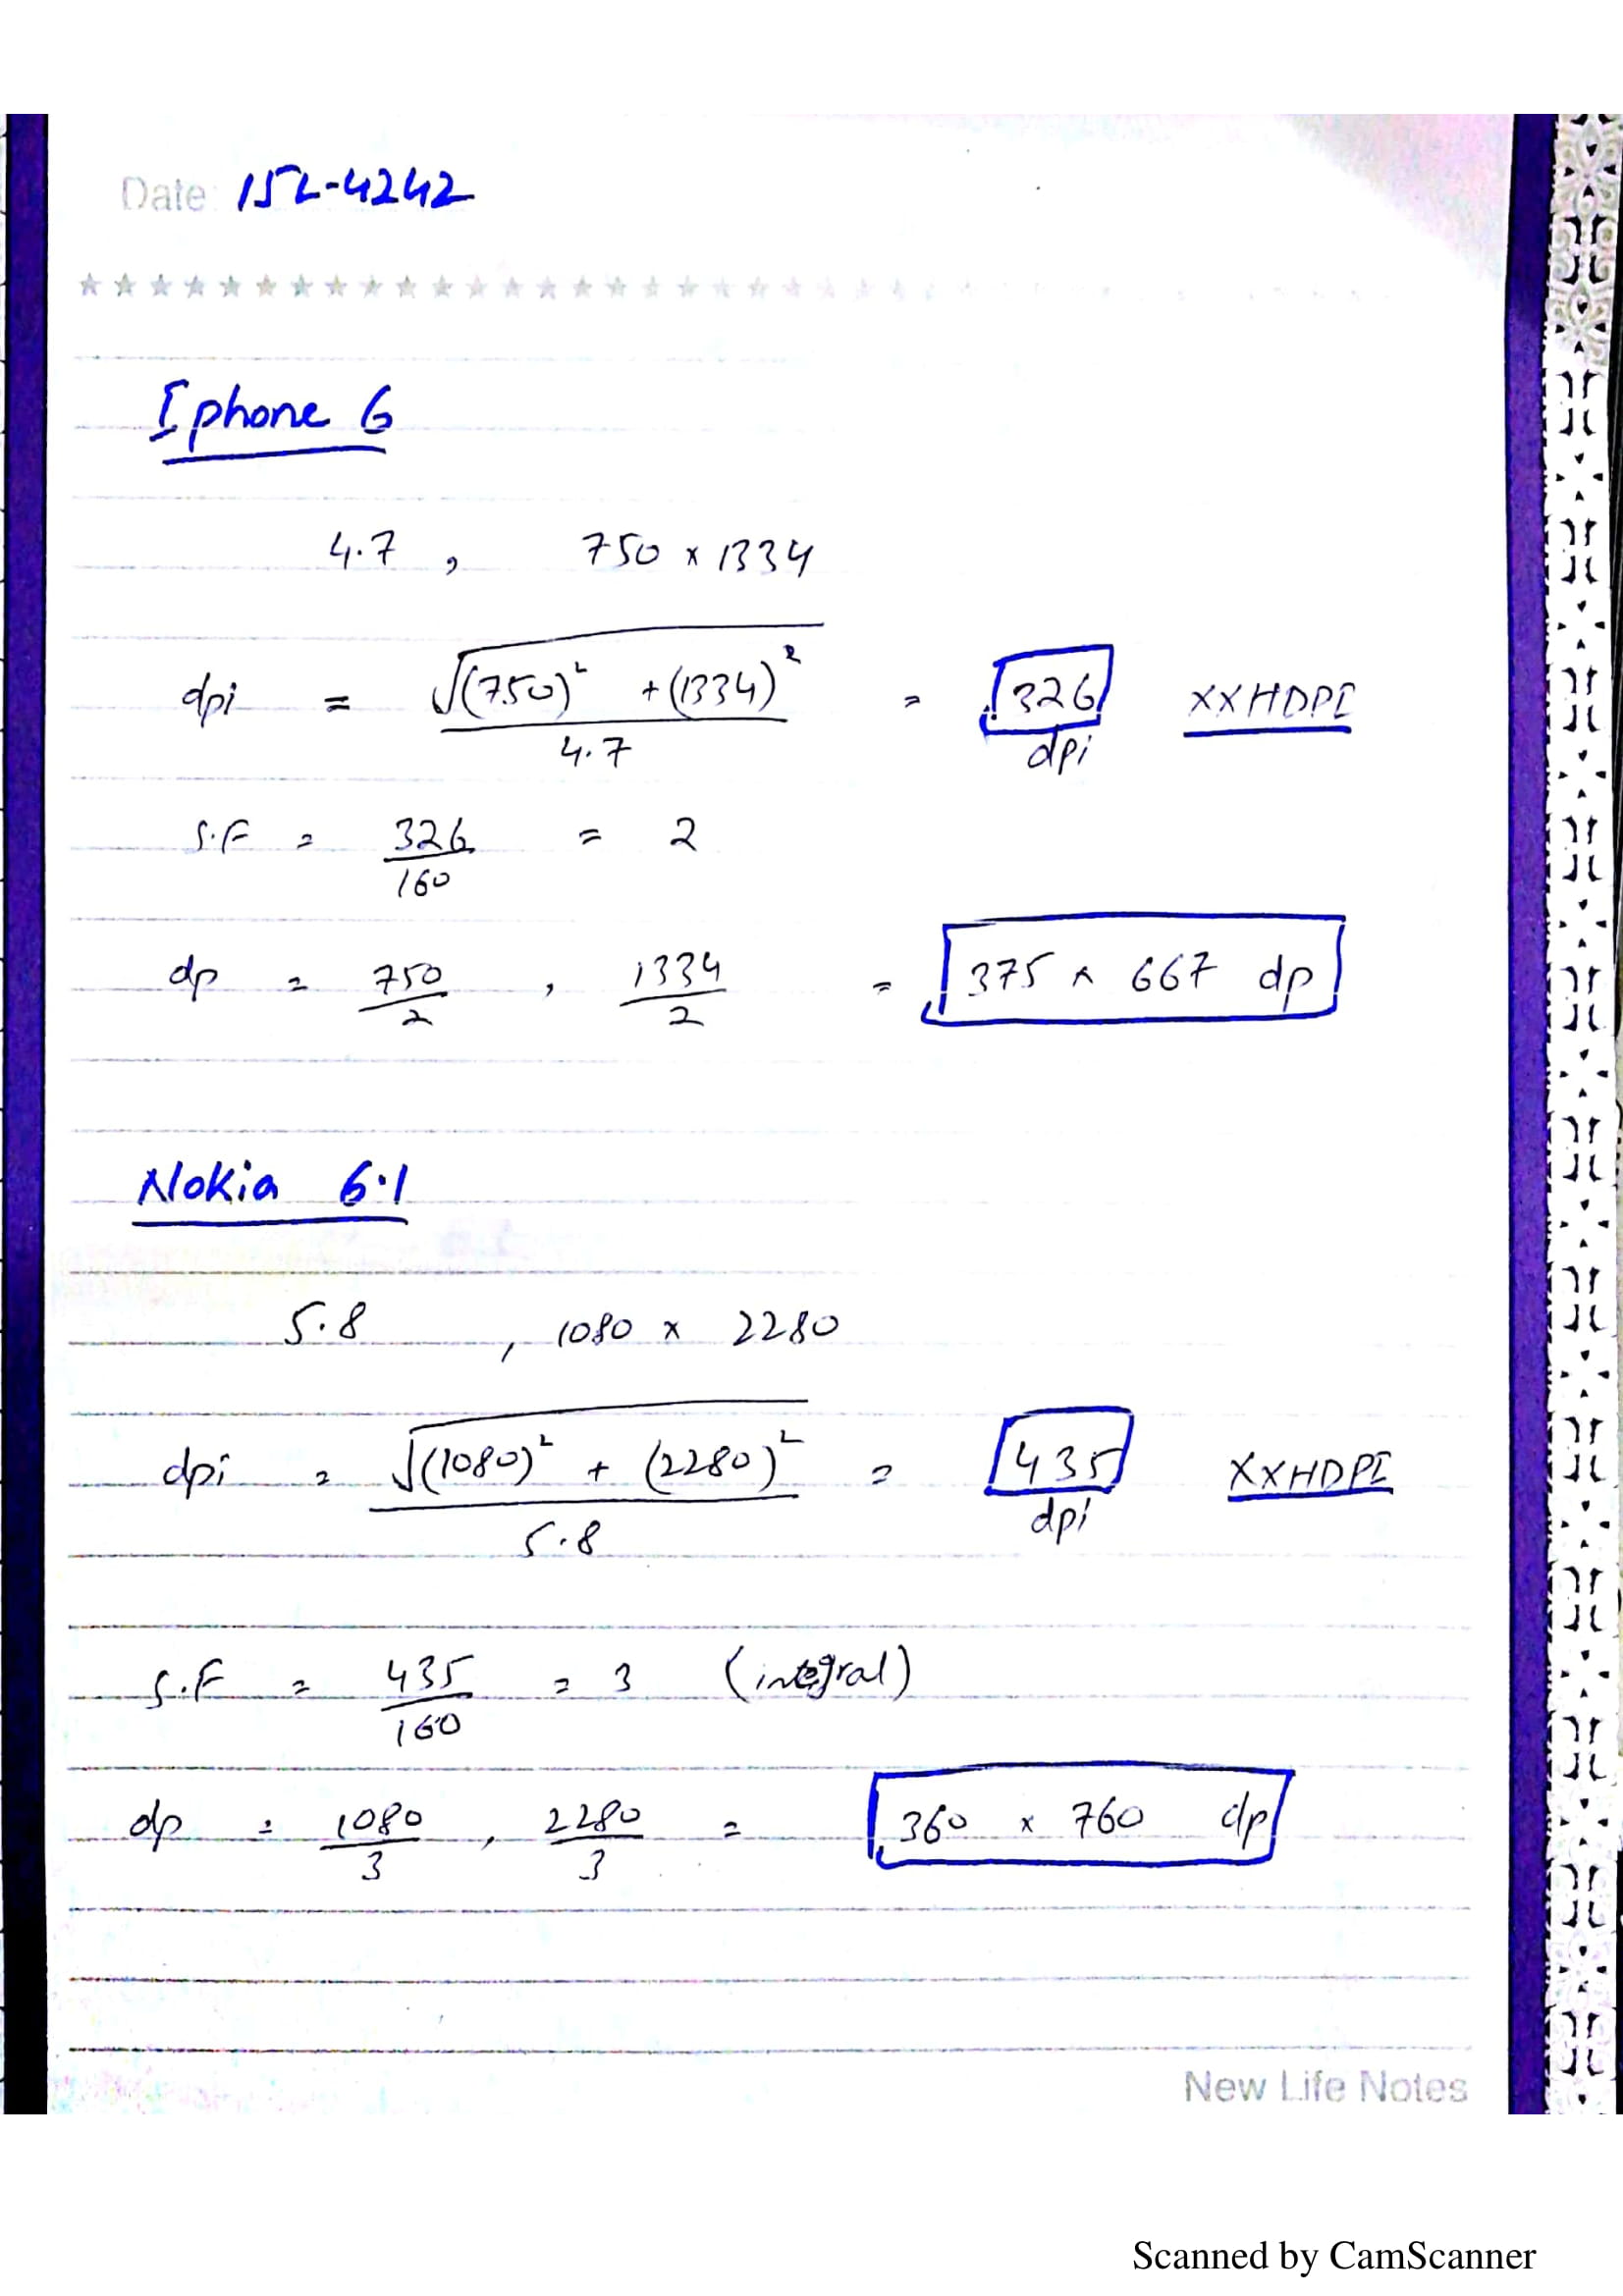 Date: 15L-4242
Iphone 6
4.7 , 750 x 1334
dpi = √(750)² + (1334)² / 4.7 = 326 dpi XXHDPI
S.F = 326 / 160 = 2
dp = 750 / 2 , 1334 / 2 = 375 x 667 dp
Nokia 6.1
5.8 , 1080 x 2280
dpi = √(1080)² + (2280)² / 5.8 = 435 dpi XXHDPI
S.F = 435 / 160 = 3 (integral)
dp = 1080 / 3 , 2280 / 3 = 360 x 760 dp
New Life Notes
Scanned by CamScanner